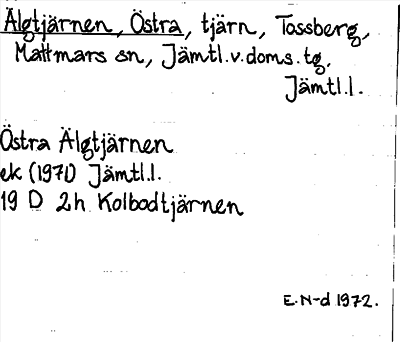 Älgtjärnen, Östra, tjärn, Tossberg,
Mattmars sn, Jämtl.v.doms.tg,
Jämtl.l.
Östra Älgtjärnen
ek (1971) Jämtl.l.
19 D 2h Kolbodtjärnen
E.N-d 1972.